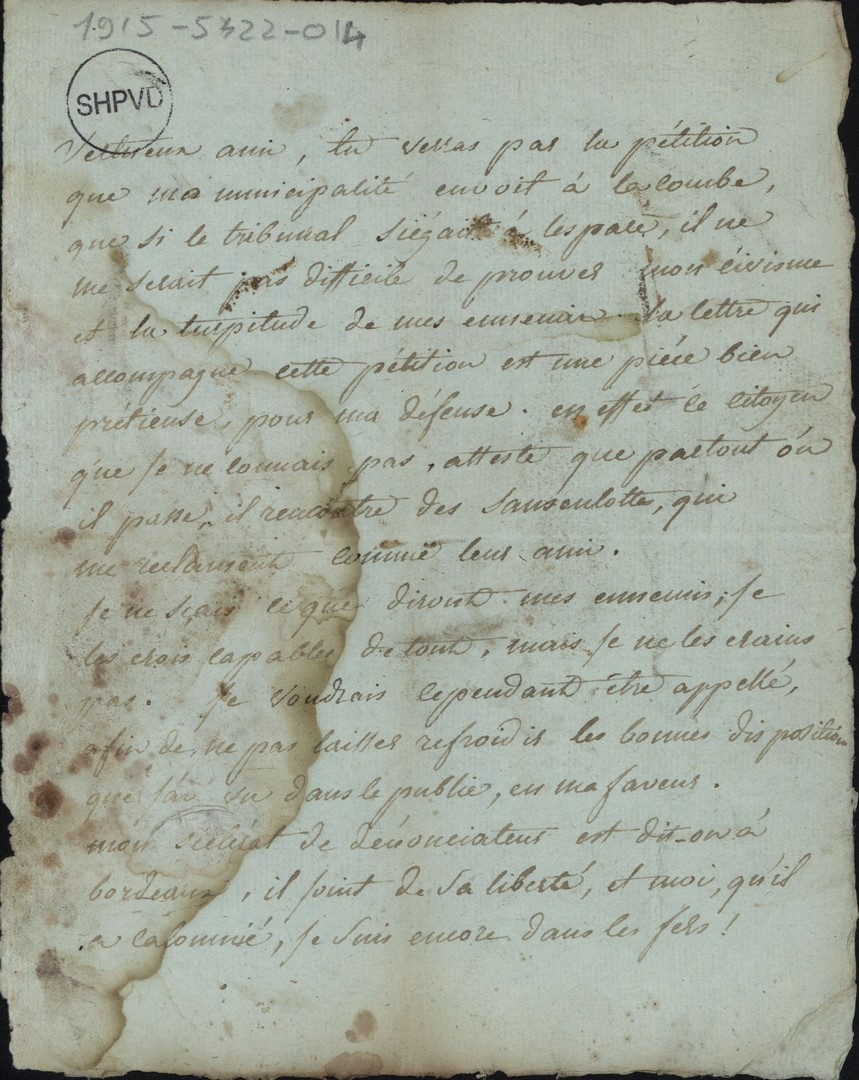 1915-5322-014
SHPVD
Vertueux ami, tu verras par la pétition
que ma municipalité envoit à lacombe,
que si le tribunal siégait à lesparre, il ne
me serait pas difficile de prouver mon civisme
et la turpitude de mes ennemis. la lettre qui
accompagne cette pétition est une piéce bien
prétieuse, pour ma défense. en effet le citoyen
que je ne connais pas, atteste que partout où
il passe, il rencontre des sansculotte, qui
me reclament comme leur ami.
je ne sçais ce que diront mes ennemis; je
les crois capables de tout, mais je ne les crains
pas. je voudrais cependant être appellé,
afin de ne pas laisser refroidir les bonnes disposition
que j'ai vu dans le public, en ma faveur.
mon scélérat de dénonciateur est dit-on à
bordeaux, il jouit de sa liberté, et moi, qu'il
a calomnié, je suis encore dans les fers!